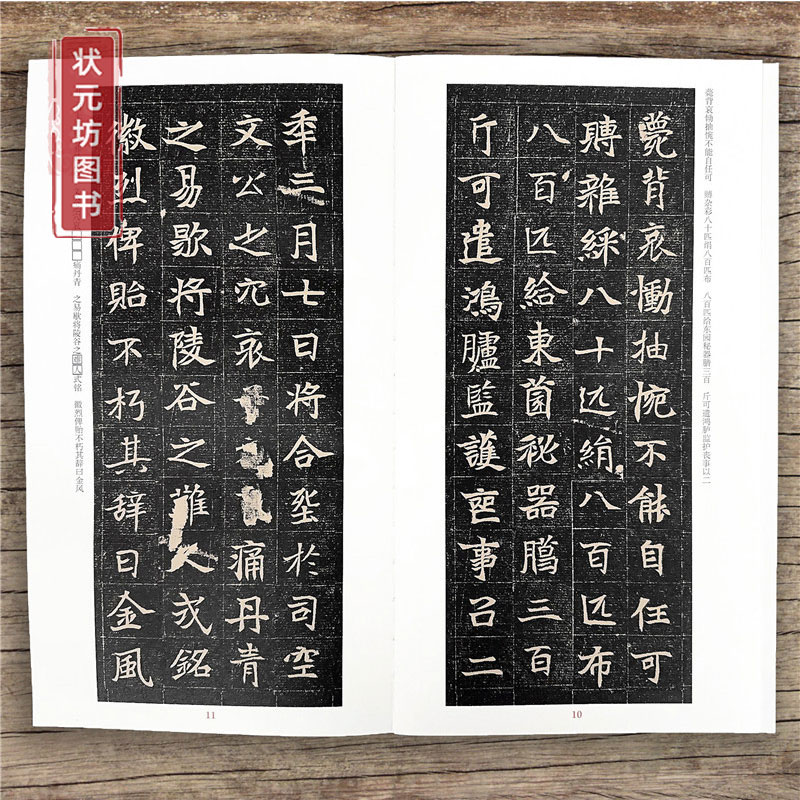 状元坊图书
薨背哀恸抽惋不能自任可 赙杂彩八十匹绢八百匹布 八百匹给东园秘器腊三百 斤可遣鸿胪监护丧事以二
薨背哀慟抽惋不能自任可
賻雜綵八十匹絹八百匹布
八百匹給東園祕器臈三百
斤可遣鴻臚監護喪事以二
10
年三月七日將合塟於司空
文公之穴哀 痛丹青
之易歇將陵谷之難人式銘
徽烈俾貽不朽其辞曰金風
痛丹青 之易歇将陵谷之难人式铭 徽烈俾贻不朽其辞曰金风
11